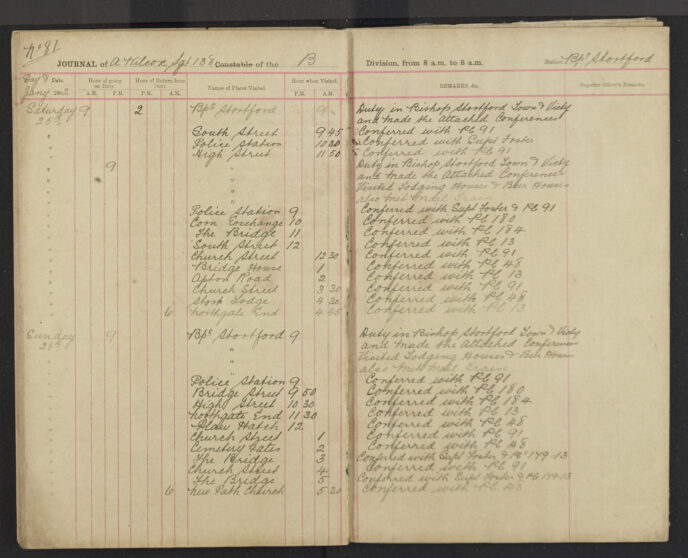 No 81
JOURNAL of A Kilcox Sgt 138 Constable of the B Division, from 8 a.m. to 8 a.m. Station Bps Stortford
Day & Date. Hour of going on Duty. Hour of Return from Duty. Names of Places Visited. Hour when Visited. REMARKS, &c. Superior Officer's Remarks.
Jany A.M. P.M. P.M. A.M. P.M. A.M.
Saturday 9 2 Bps Stortford 9 Duty in Bishop Stortford Town & Victy
25th and made the Attached Conferences
" South Street 9 45 Conferred with Pc 91
" Police Station 10 30 Conferred with Supt Foster
" High Street 11 50 Conferred with Pc 91
" 9 " Duty in Bishop Stortford Town & Victy
" " and made the Attached Conferences
" " Visited Lodging Houses & Beer Houses
" " also met Mail Train
" Police Station 9 Conferred with Supt Foster & Pc 91
" Corn Exchange 10 Conferred with Pc 180
" The Bridge 11 Conferred with Pc 184
" South Street 12 Conferred with Pc 13
" Church Street 12 30 Conferred with Pc 91
" Bridge House 1 Conferred with Pc 48
" Apton Road 2 Conferred with Pc 13
" Church Street 3 30 Conferred with Pc 91
" Stort Lodge 4 30 Conferred with Pc 48
" 6 Northgate End 4 45 Conferred with Pc 13
Sunday 9 Bps Stortford 9 Duty in Bishop Stortford Town & Victy
26th and made the Attached Conferences
" " Visited Lodging Houses & Beer Houses
" " also met Mail Train
" Police Station 9 Conferred with Pc 91
" Bridge Street 9 50 Conferred with Pc 180
" High Street 10 30 Conferred with Pc 184
" Northgate End 11 30 Conferred with Pc 13
" Plaw Hatch 12 Conferred with Pc 48
" Church Street 1 Conferred with Pc 91
" Cemetery Gates 2 Conferred with Pc 48
" The Bridge 3 Conferred with Supt Foster & Pcs 179-13
" Church Street 4 Conferred with Pc 91
" The Bridge 5 Conferred with Supt Foster & Pc 179-13
" 6 New Path Church 5 30 Conferred with Pc 48